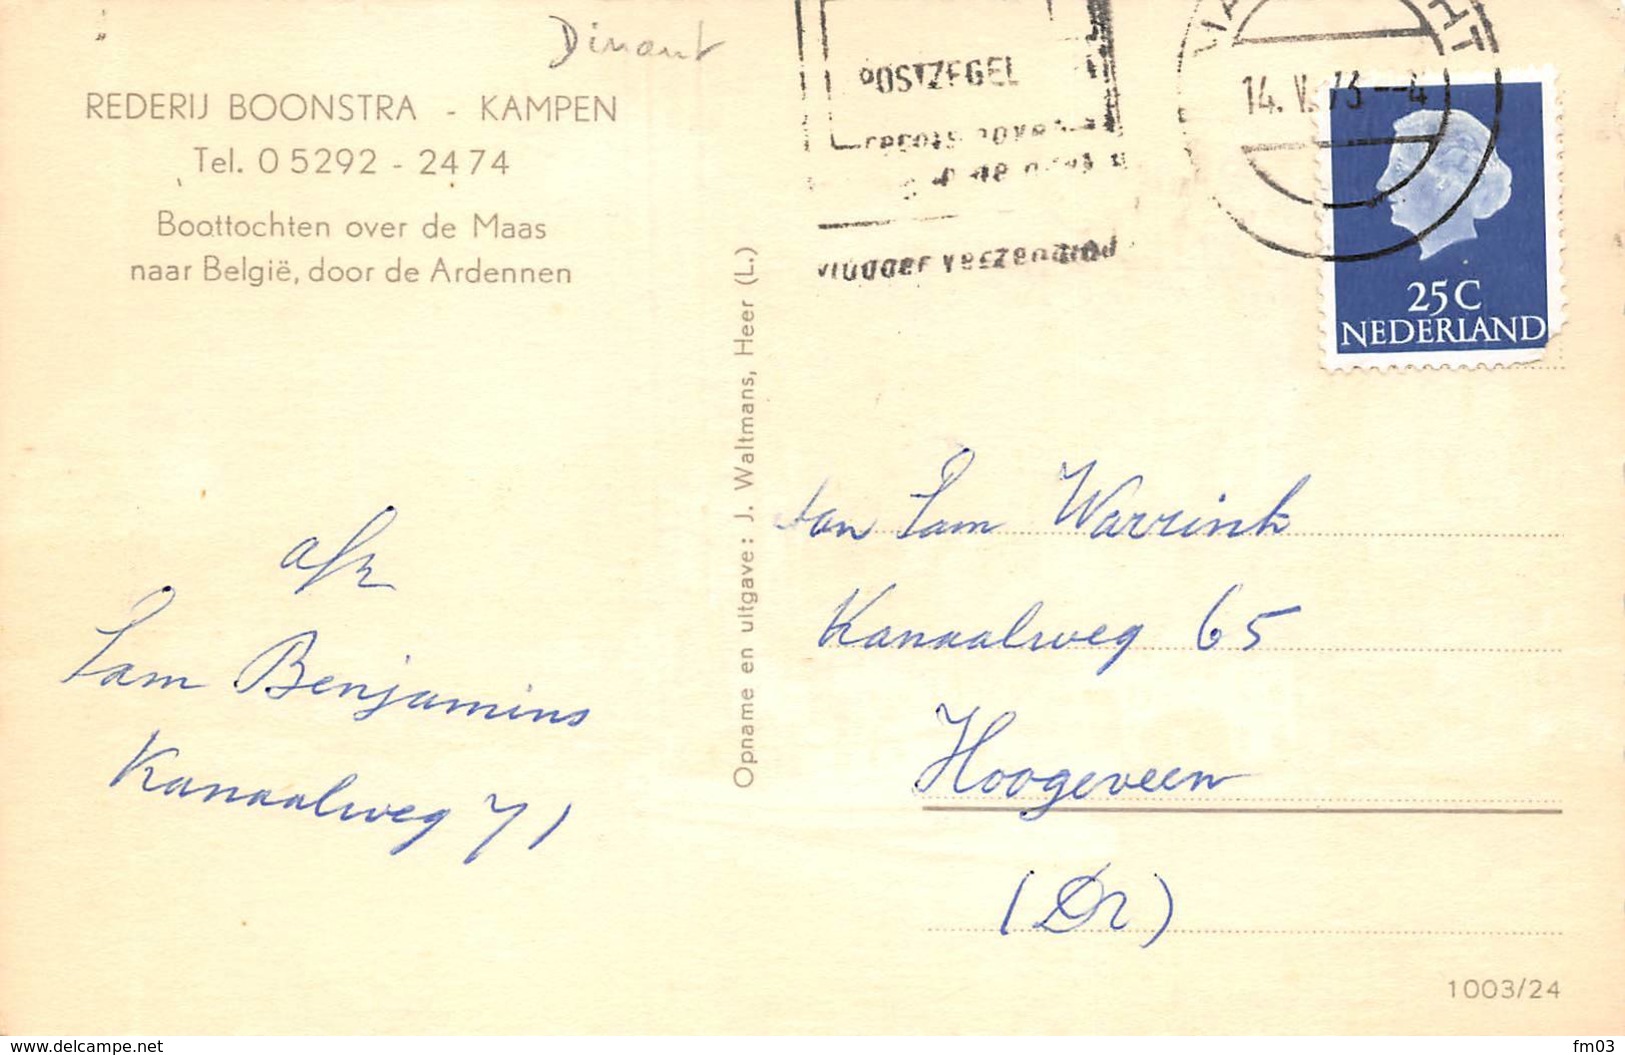 Dinant
REDERIJ BOONSTRA - KAMPEN
Tel. 0 5292 - 2474
Boottochten over de Maas
naar België, door de Ardennen
POSTZEGEL
rechts boven
vlugger verzending
14. V. 73 - 4
25 C
NEDERLAND
Opname en uitgave: J. Waltmans, Heer (L.)
afz
Fam Benjamins
Kanaalweg 71
Aan Fam Warrink
Kanaalweg 65
Hoogeveen
(Dr)
1003/24
delcampe.net
fm03